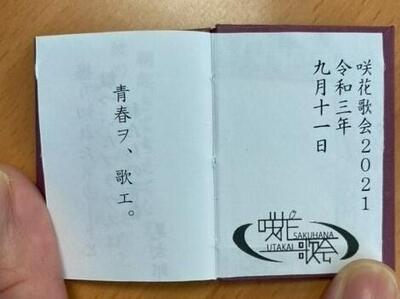 咲花歌会2021
令和三年
九月十一日
咲花
SAKUHANA
UTAKAI
歌会
青春ヲ、歌エ。